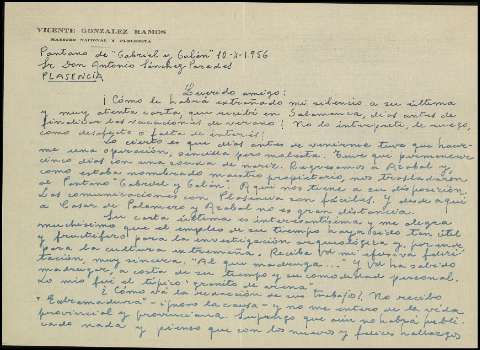 VICENTE GONZALEZ RAMOS
MAESTRO NACIONAL Y PUBLICISTA
Pantano de "Gabriel y Galán" 10-X-1956
Sr Don Antonio Sánchez-Paredes
PLASENCIA
Querido amigo:
¡Cómo le habrá extrañado mi silencio a su última
y muy atenta carta, que recibí en Salamanca, días antes de
finalizar las vacaciones de verano! No lo interprete, le ruego,
como desafecto o falta de interés!
Lo cierto es que días antes de venirme tuve que hacer-
me una operación, sencilla pero molesta. Tuve que permanecer
cinco días con una sonda de nariz. Regresamos a Azabal y
como estaba nombrado maestro propietario, nos trasladaron
al Pantano "Gabriel y Galán". Aquí nos tiene a su disposición.
Las comunicaciones con Plasencia son fáciles. Y desde aquí
a Casar de Palomero y Azabal no es gran distancia.
Su carta última es interesantísima y me alegra
muchísimo que el empleo de su tiempo haya sido tan útil
y fructífero para la investigación arqueológica y, por ende,
para la cultura extremeña. Reciba Vd mi efusiva felici-
tación, muy sincera. "Al que madruga..." Y Vd ha sabido
madrugar, a costa de su tiempo y su comodidad personal.
Lo mío fué el típico "granito de arena".
¿Cómo va la de su trabajo? No recibo
"Extremadura" - ignoro la causa - y no me entero de la vida
provincial y provinciana. Supongo que aún no habrá publi-
cado nada y pienso que con los nuevos y felices hallazgos